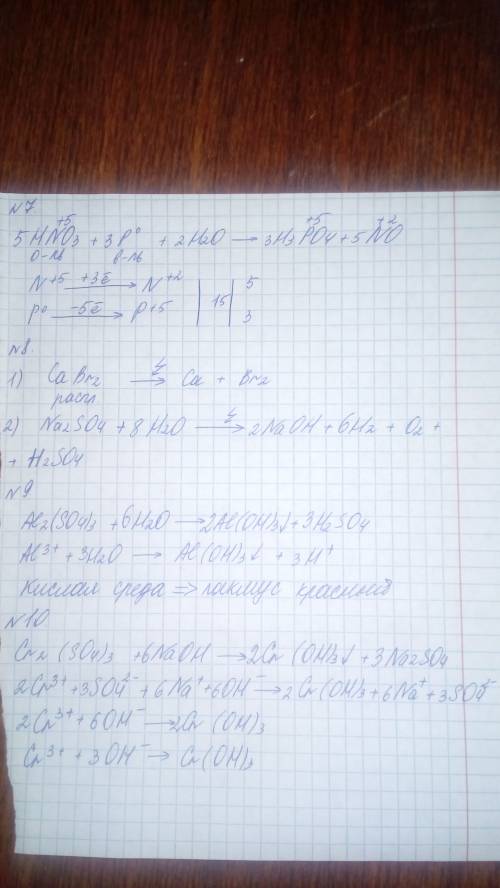 N7
5HN⁺⁵O₃ + 3P⁰ + 2H₂O → 3H₃P⁺⁵O₄ + 5N⁺²O
о-ль в-ль
N⁺⁵ +3ē → N⁺² | 15 | 5
P⁰ -5ē → P⁺⁵ | | 3
N8.
1) CaBr₂ → Ca + Br₂
распл
2) Na₂SO₄ + 8H₂O → 2NaOH + 6H₂ + O₂ +
+ H₂SO₄
N9
Al₂(SO₄)₃ + 6H₂O → 2Al(OH)₃↓ + 3H₂SO₄
Al³⁺ + 3H₂O → Al(OH)₃↓ + 3H⁺
Кислая среда => лакмус красный
N10
Cr₂(SO₄)₃ + 6NaOH → 2Cr(OH)₃↓ + 3Na₂SO₄
2Cr³⁺ + 3SO₄²⁻ + 6Na⁺ + 6OH⁻ → 2Cr(OH)₃ + 6Na⁺ + 3SO₄²⁻
2Cr³⁺ + 6OH⁻ → 2Cr(OH)₃
Cr³⁺ + 3OH⁻ → Cr(OH)₃